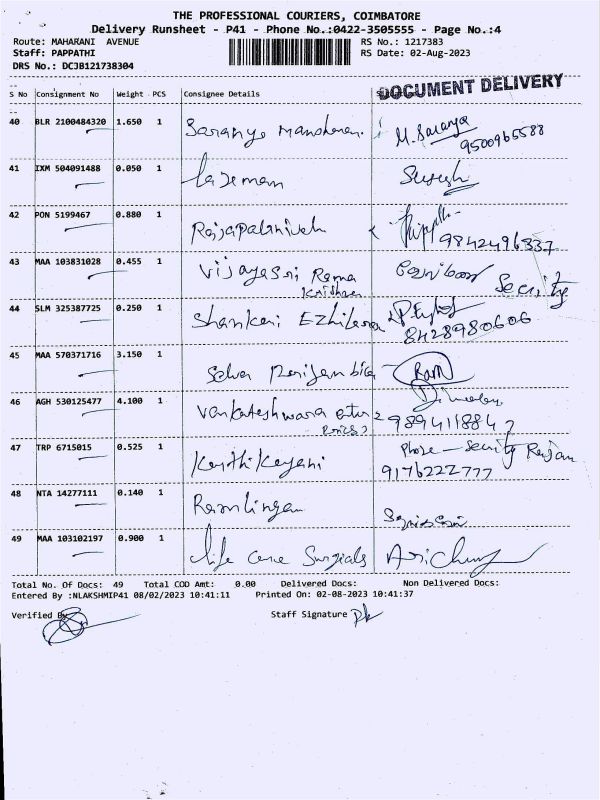 THE PROFESSIONAL COURIERS, COIMBATORE
Delivery Runsheet - P41 - Phone No.:0422-3505555 - Page No.:4
Route: MAHARANI AVENUE RS No.: 1217383
Staff: PAPPATHI RS Date: 02-Aug-2023
DRS No.: DCJB121738304
DOCUMENT DELIVERY
S No Consignment No Weight PCS Consignee Details
40 BLR 2100484320 1.650 1 Saranya M. Saranya
9500965588
41 IXM 504091488 0.050 1 Suresh
42 PON 5199467 0.880 1 Rajapalanivel
9842496337
43 MAA 103831028 0.455 1 Vijayasri Rama Security
Krishnan
44 SLM 325387725 0.250 1 Shankari Ezhilarasa
8428980606
45 MAA 570371716 3.150 1 Selva Ram
46 AGH 530125477 4.100 1 Venkateshwara
9894118847
47 TRP 6715015 0.525 1 Karthikeyani
9176222777
48 NTA 14277111 0.140 1 Ramlingam
49 MAA 103102197 0.900 1 Life Care Surgicals
Total No. Of Docs: 49 Total COD Amt: 0.00 Delivered Docs: Non Delivered Docs:
Entered By :NLAKSHMIP41 08/02/2023 10:41:11 Printed On: 02-08-2023 10:41:37
Verified By Staff Signature